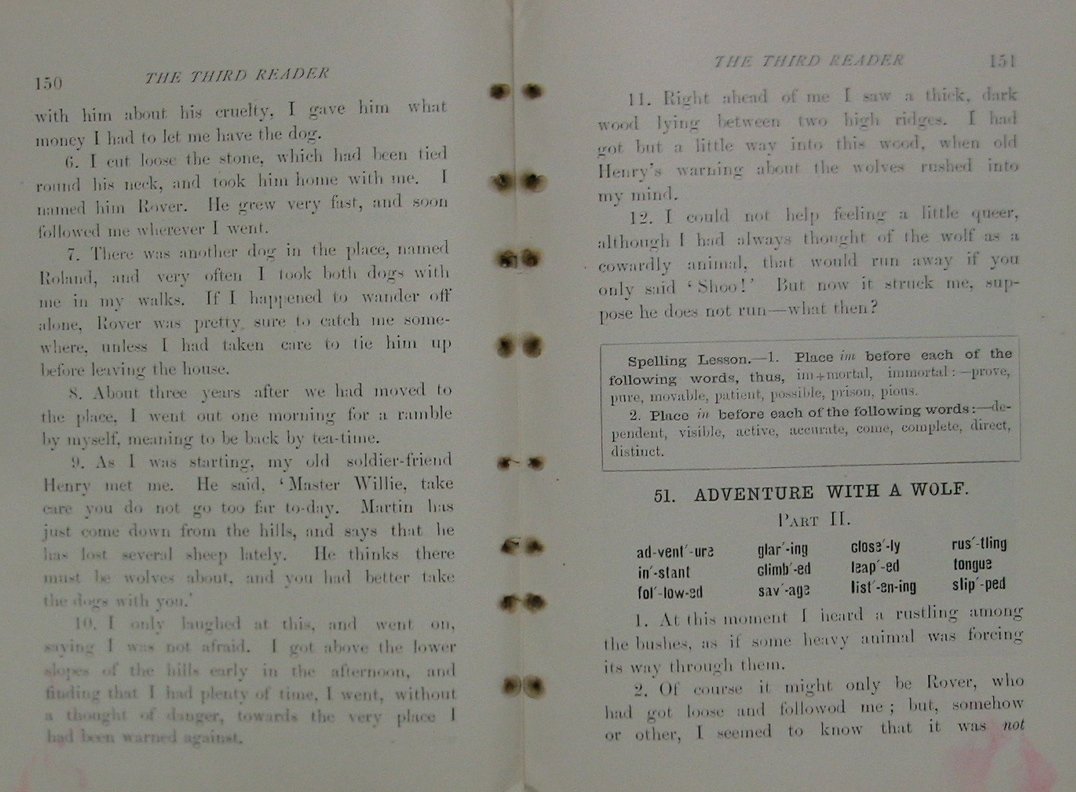 150 THE THIRD READER
with him about his cruelty, I gave him what
money I had to let me have the dog.
6. I cut loose the stone, which had been tied
round his neck, and took him home with me. I
named him Rover. He grew very fast, and soon
followed me wherever I went.
7. There was another dog in the place, named
Roland, and very often I took both dogs with
me in my walks. If I happened to wander off
alone, Rover was pretty sure to catch me some-
where, unless I had taken care to tie him up
before leaving the house.
8. About three years after we had moved to
the place, I went out one morning for a ramble
by myself, meaning to be back by tea-time.
9. As I was starting, my old soldier-friend
Henry met me. He said, ‘Master Willie, take
care you do not go too far to-day. Martin has
just come down from the hills, and says that he
has lost several sheep lately. He thinks there
must be wolves about, and you had better take
the dogs with you.’
10. I only laughed at this, and went on,
saying I was not afraid. I got above the lower
slopes of the hills early in the afternoon, and
finding that I had plenty of time, I went, without
a thought of danger, towards the very place I
had been warned against.
THE THIRD READER 151
11. Right ahead of me I saw a thick, dark
wood lying between two high ridges. I had
got but a little way into this wood, when old
Henry's warning about the wolves rushed into
my mind.
12. I could not help feeling a little queer,
although I had always thought of the wolf as a
cowardly animal, that would run away if you
only said ‘Shoo!’ But now it struck me, sup-
pose he does not run—what then?
Spelling Lesson.—1. Place im before each of the
following words, thus, im+mortal, immortal:—prove,
pure, movable, patient, possible, prison, pious.
2. Place in before each of the following words:—de-
pendent, visible, active, accurate, come, complete, direct,
distinct.
51. ADVENTURE WITH A WOLF.
PART II.
ad-vent′-ure glar′-ing close′-ly rus′-tling
in′-stant climb′-ed leap′-ed tongue
fol′-low-ed sav′-age list′-en-ing slip′-ped
1. At this moment I heard a rustling among
the bushes, as if some heavy animal was forcing
its way through them.
2. Of course it might only be Rover, who
had got loose and followed me; but, somehow
or other, I seemed to know that it was not